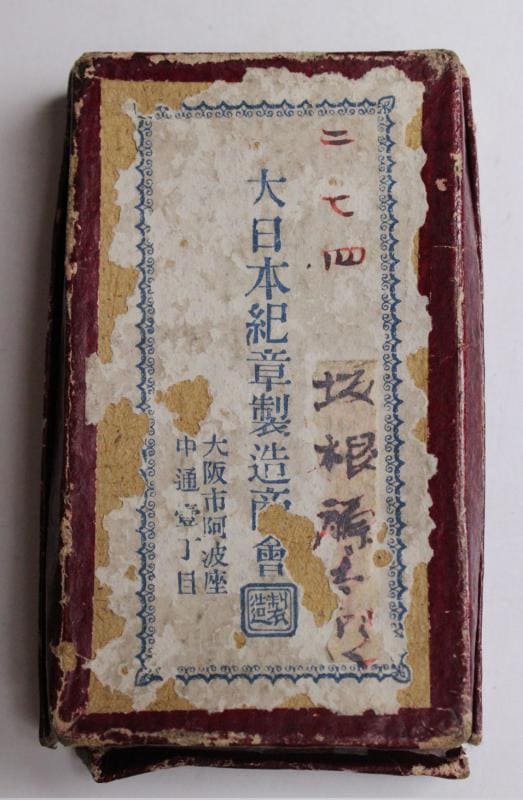 二七四
坂根太郎
大日本紀章製造商會
製造
大阪市阿波座
中通壹丁目